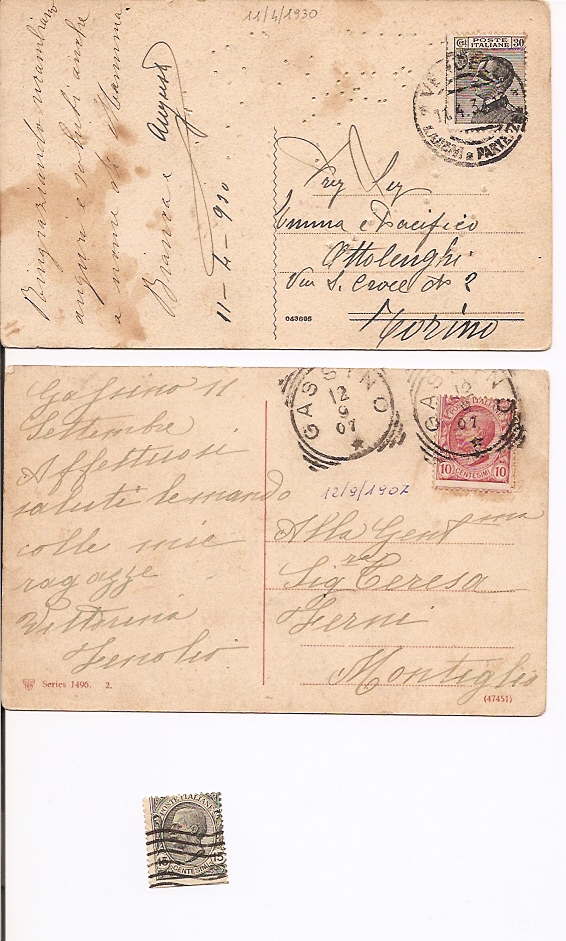 11/4/1930
Ringraziando ricambiano
auguri e saluti anche
a nome di Mamma
Bianca e Augusto
11-4-930
Cmi POSTE ITALIANE 30
11.4.30
ARRIVI e PARTENZE
Emma e Pacifico
Ottolenghi
Via S. Croce No 2
Torino
043805
GASSINO
12
9
07
GASSINO
12
9
07
POSTE ITALIANE
10 CENTESIMI 10
12/9/1907
Gassino 11
Settembre
Affettuosi
saluti le mando
colle mie
ragazze
Vittorina
Alla Gent ma
Sig ra Teresa
Montiglio
Series 1496. 2.
(47451)
POSTE ITALIANE
15 CENTESIMI 15